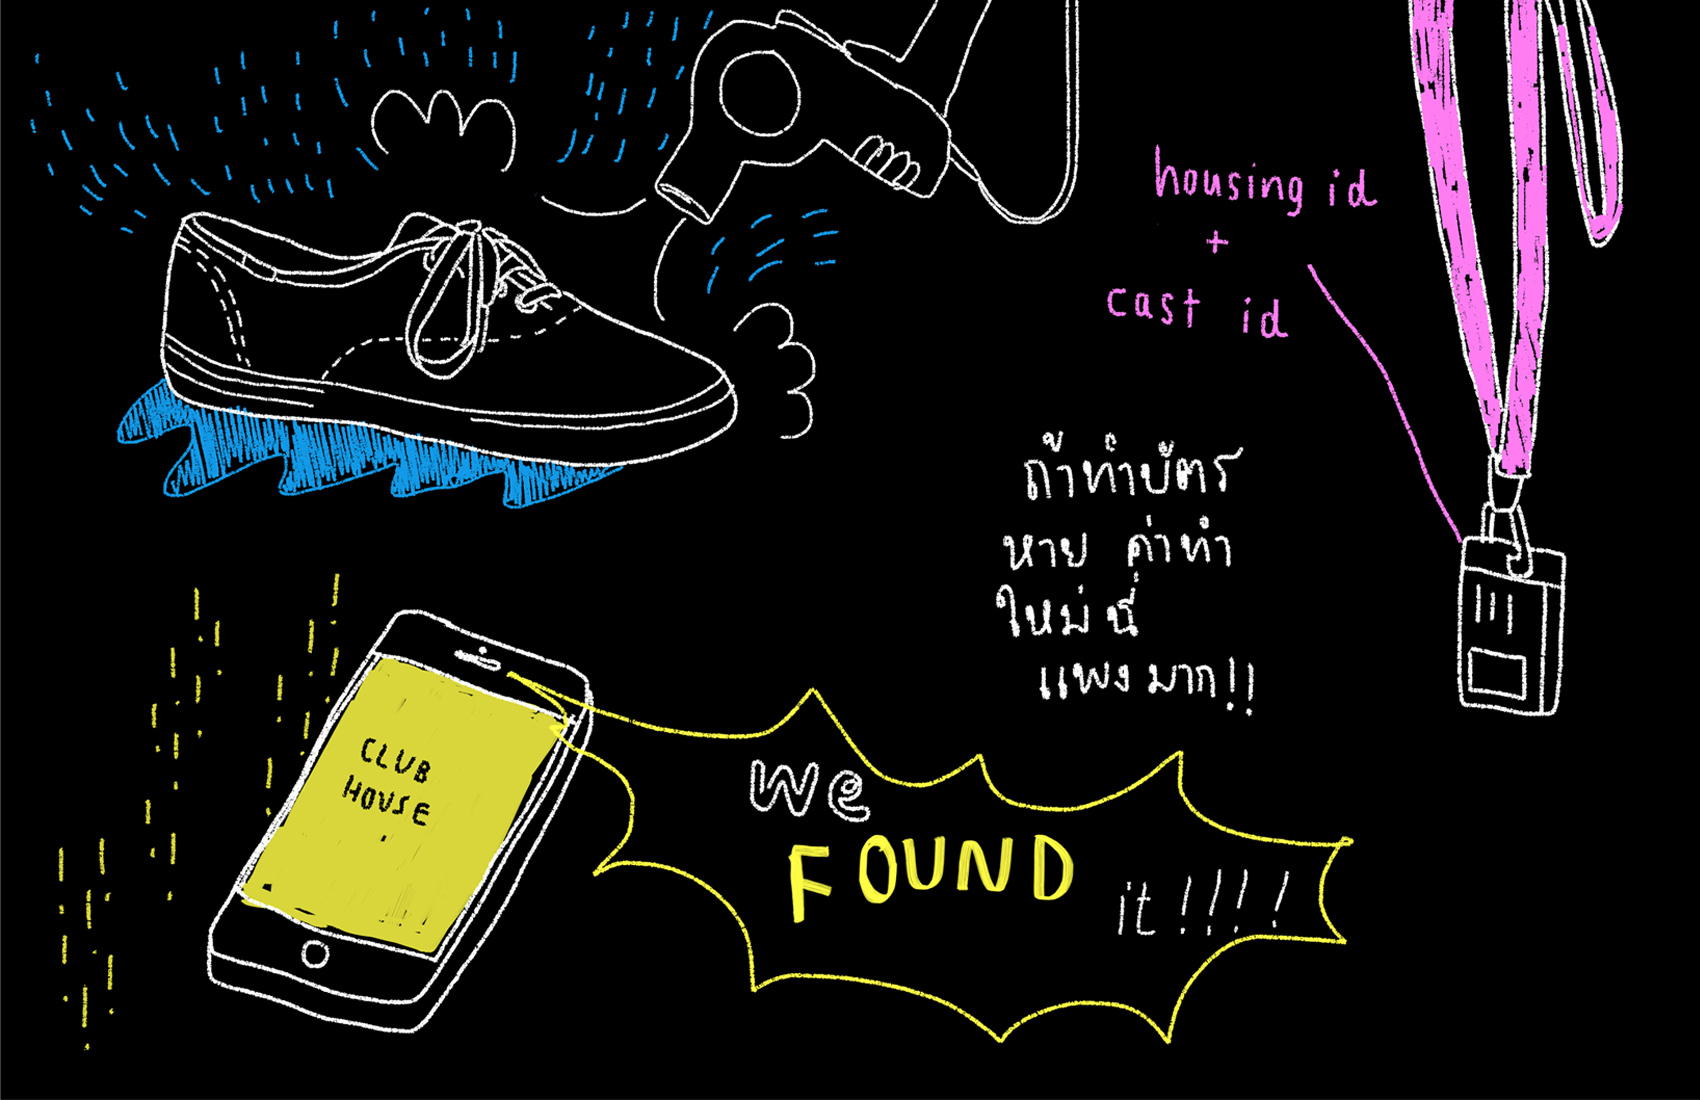 housing id
+
cast id
ถ้าทำบัตร
หาย ค่าทำ
ใหม่นี่
แพงมาก!!
CLUB
HOUSE
we
FOUND
it!!!!